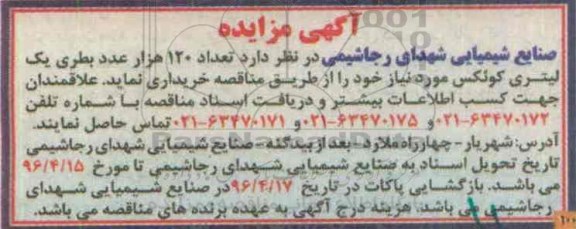 آگهی مزایده
صنایع شیمیایی شهدای رجاشیمی در نظر دارد تعداد ۱۲۰ هزار عدد بطری یک
لیتری کوئکس مورد نیاز خود را از طریق مناقصه خریداری نماید. علاقمندان
جهت کسب اطلاعات بیشتر و دریافت اسناد مناقصه با شماره تلفن
۰۲۱-۶۳۴۷۰۱۷۲ و ۰۲۱-۶۳۴۷۰۱۷۵ و ۰۲۱-۶۳۴۷۰۱۷۱ تماس حاصل نمایند.
آدرس: شهریار - چهارراه ملارد - بعد از بیدگنه - صنایع شیمیایی شهدای رجاشیمی
تاریخ تحویل اسناد به صنایع شیمیایی شهدای رجاشیمی تا مورخ ۹۶/۴/۱۵
می باشد. بازگشایی پاکات در تاریخ ۹۶/۴/۱۷ در صنایع شیمیایی شهدای
رجاشیمی می باشد. هزینه درج آگهی به عهده برنده های مناقصه می باشد.